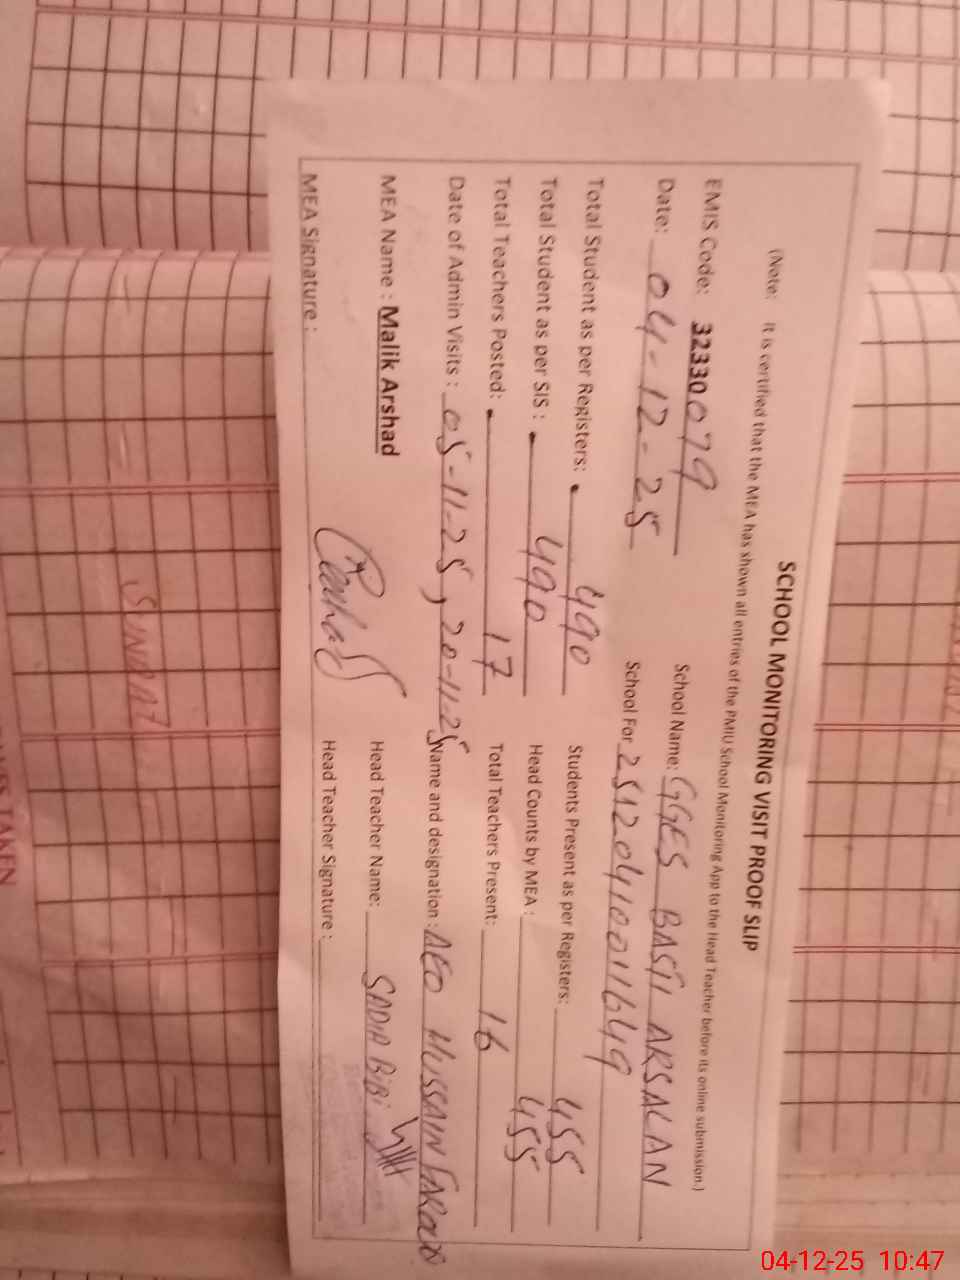 SCHOOL MONITORING VISIT PROOF SLIP
(Note: It is certified that the MEA has shown all entries of the PMIU School Monitoring App to the Head Teacher before its online submission.)
EMIS Code: 32330079 School Name: GGES BASTI ARSALAN
Date: 04-12-25 School For 2512041001649
Total Student as per Registers: 490 Students Present as per Registers: 455
Total Student as per SIS : 490 Head Counts by MEA : 455
Total Teachers Posted: 17 Total Teachers Present: 16
Date of Admin Visits : 05-11-25, 20-11-25 Name and designation : AEO HUSSAIN FAROOQ
MEA Name : Malik Arshad Head Teacher Name: SADIA BiBi
MEA Signature : Head Teacher Signature :
SUNDAY
TAKEN
04-12-25 10:47